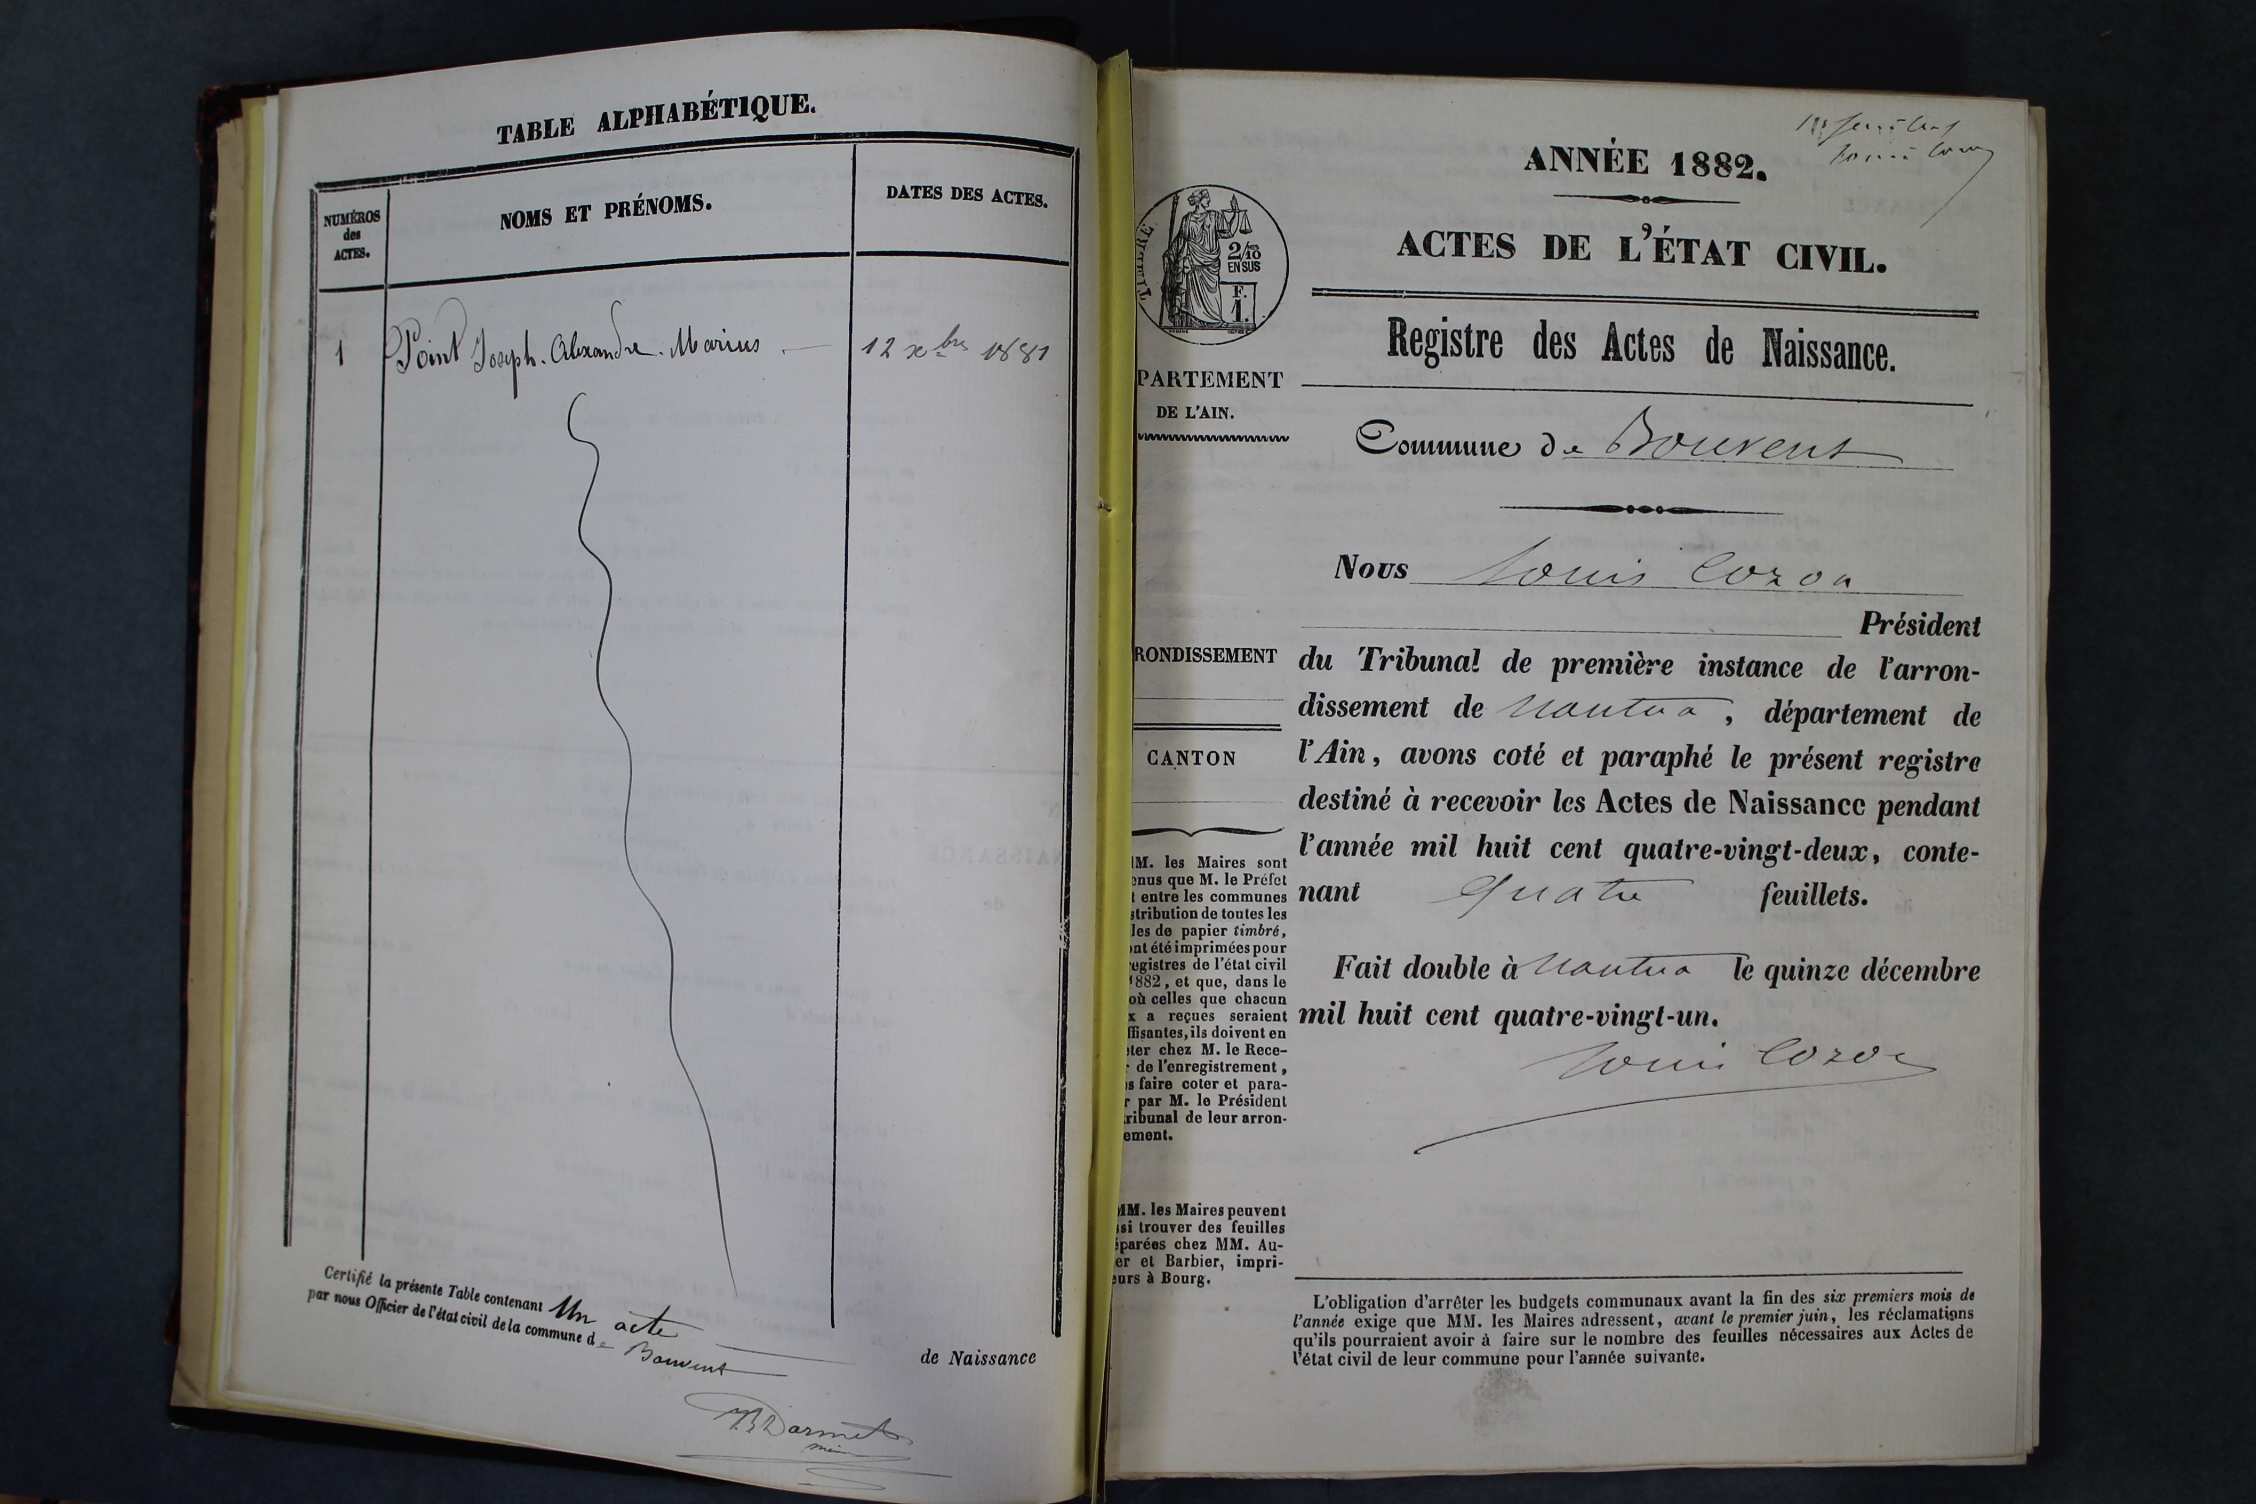 TABLE ALPHABÉTIQUE.
NUMÉROS
des
ACTES.
NOMS ET PRÉNOMS.
DATES DES ACTES.
1 Point Joseph. Alexandre. Marius 12 xbre 1881
Certifié la présente Table contenant Un acte de Naissance
par nous Officier de l'état civil de la commune de Bouvent
Darmet
1er feuillet
Louis Cozon
ANNÉE 1882.
ACTES DE L'ÉTAT CIVIL.
Registre des Actes de Naissance.
TIMBRE
2/10
EN SUS
F.
1.
PARTEMENT
DE L'AIN.
Commune de Bouvent
Nous Louis Cozon
Président
du Tribunal de première instance de l'arron-
dissement de Nantua, département de
l'Ain, avons coté et paraphé le présent registre
destiné à recevoir les Actes de Naissance pendant
l'année mil huit cent quatre-vingt-deux, conte-
nant quatre feuillets.
Fait double à Nantua le quinze décembre
mil huit cent quatre-vingt-un.
Louis Cozon
RONDISSEMENT
CANTON
MM. les Maires sont
enus que M. le Préfet
t entre les communes
stribution de toutes les
les de papier timbré,
ont été imprimées pour
registres de l'état civil
1882, et que, dans le
où celles que chacun
x a reçues seraient
ffisantes, ils doivent en
eter chez M. le Rece-
r de l'enregistrement,
s faire coter et para-
r par M. le Président
tribunal de leur arron-
ement.
MM. les Maires peuvent
ssi trouver des feuilles
éparées chez MM. Au-
er et Barbier, impri-
eurs à Bourg.
L'obligation d'arrêter les budgets communaux avant la fin des six premiers mois de
l'année exige que MM. les Maires adressent, avant le premier juin, les réclamations
qu'ils pourraient avoir à faire sur le nombre des feuilles nécessaires aux Actes de
l'état civil de leur commune pour l'année suivante.